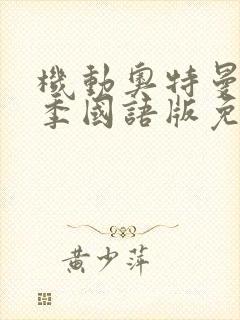 機動奧特曼
季國語版免
黃少萍